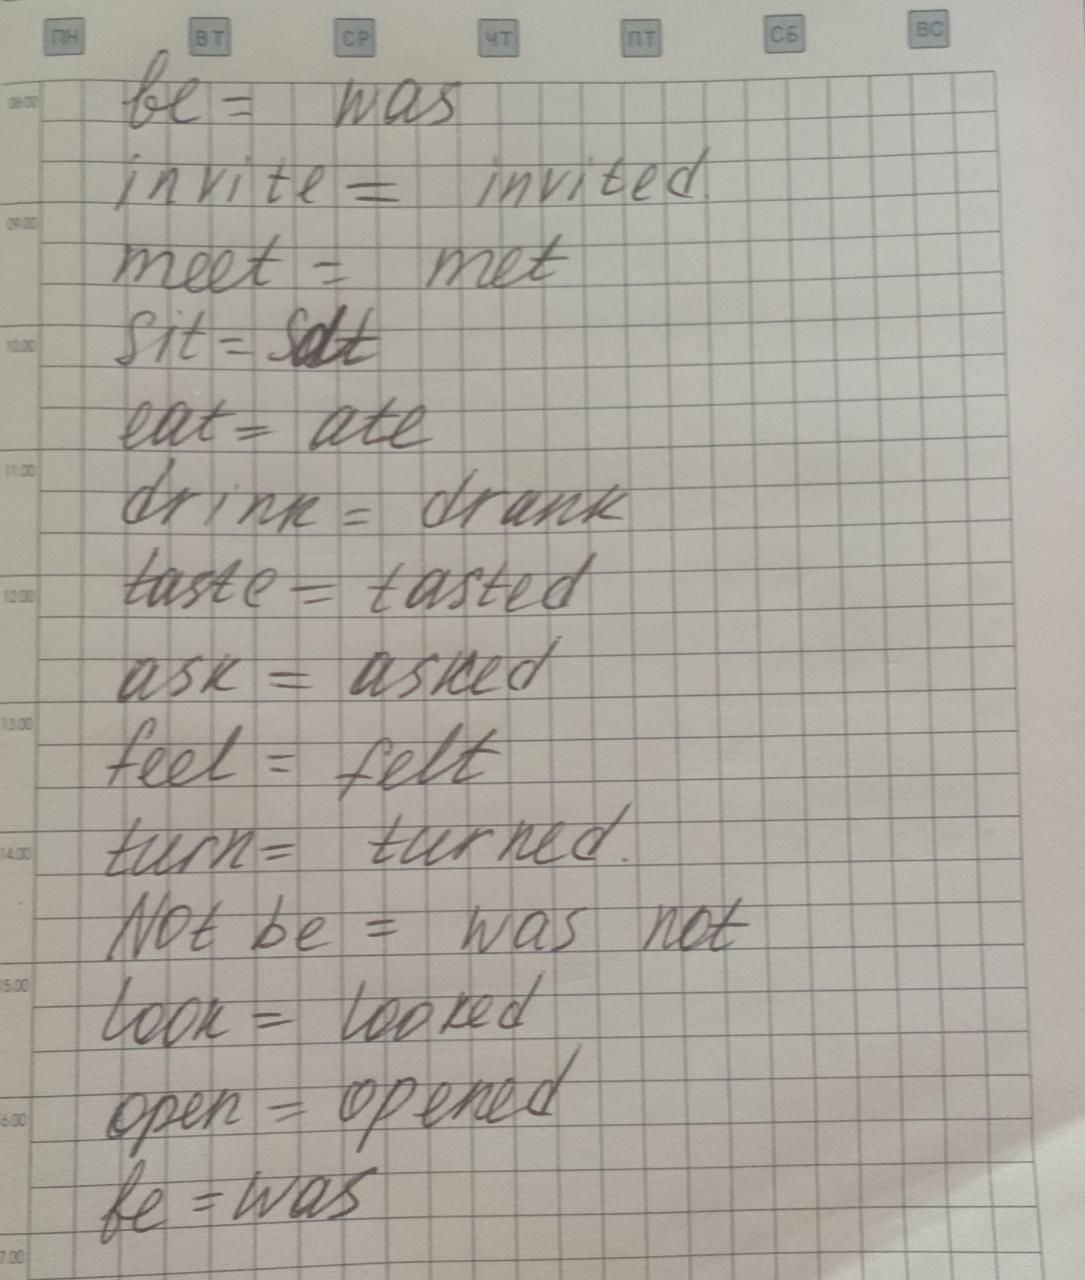 ПН ВТ СР ЧТ ПТ СБ ВС
08:00
be = was
invite = invited.
09:00
meet = met
10:00
sit = sat
eat = ate
11:00
drink = drank
12:00
taste = tasted
ask = asked
13:00
feel = felt
14:00
turn = turned.
Not be = was not
15:00
look = looked
open = opened
6:00
be = was
7:00